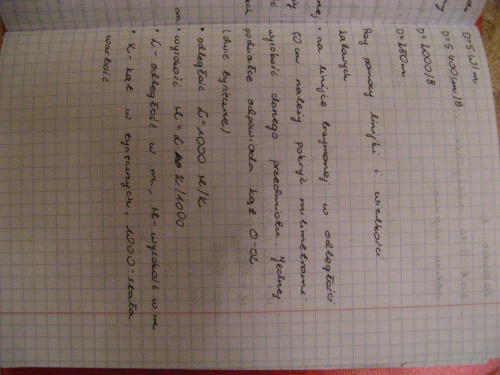 D=5 W/m
D=5 400cm/B
D=2000/B
D=250m
Przy pomocy linijki i wielkości
kątowych
• na linijce trzymanej w odległości
50cm należy pokryć milimetrami
wysokość danego przedmiotu. Jednej
podziałce odpowiada kąt 0-02
(dwie tysięczne)
• odległość D=1000 H/K
• wysokość H=D K/1000
• D-odległość w m, H-wysokość w m
• K-kąt w tysięcznych, 1000-stała
wartość